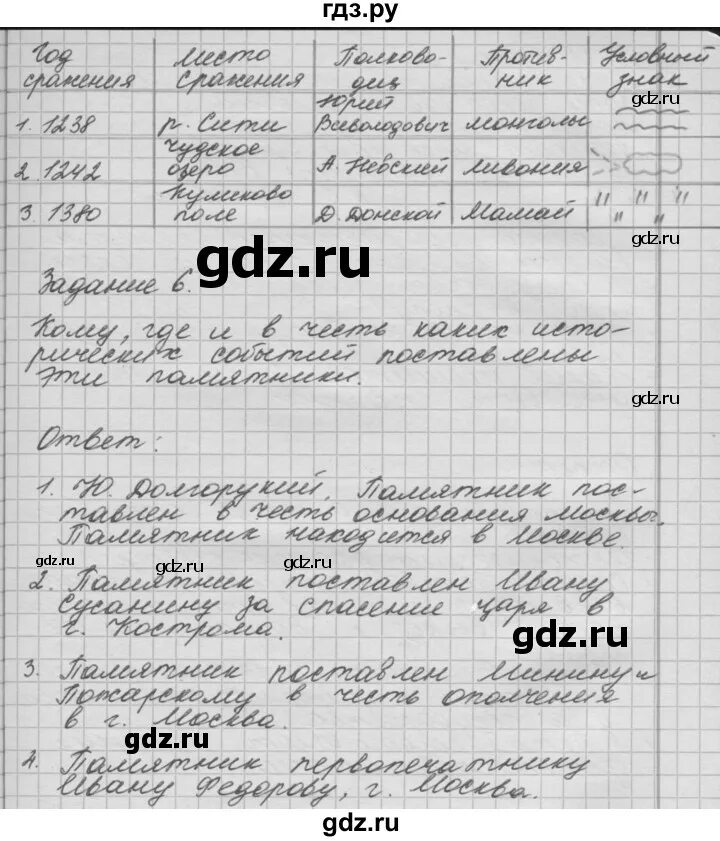 гдз.ру
Год сражения | Место сражения | Полководец | Противник | Условный знак
1. 1238 | р. Сити | Юрий Всеволодович | монголы
2. 1242 | Чудское озеро | А. Невский | Ливония
3. 1380 | Куликово поле | Д. Донской | Мамай | " " " " "
gdz.ru
gdz.ru
gdz.ru
gdz.ru
Задание 6.
Кому, где и в честь каких исто-
рических событий поставлены
эти памятники.
gdz.ru
Ответ:
1. Ю. Долгорукий. Памятник пос-
тавлен в честь основания Москвы.
Памятник находится в Москве.
gdz.ru gdz.ru gdz.ru gdz.ru
2. Памятник поставлен Ивану
Сусанину за спасение царя в
г. Кострома.
gdz.ru
3. Памятник поставлен Минину и
Пожарскому в честь ополчения
в г. Москва.
gdz.ru
4. Памятник первопечатнику
Ивану Федорову, г. Москва.
gdz.ru
gdz.ru